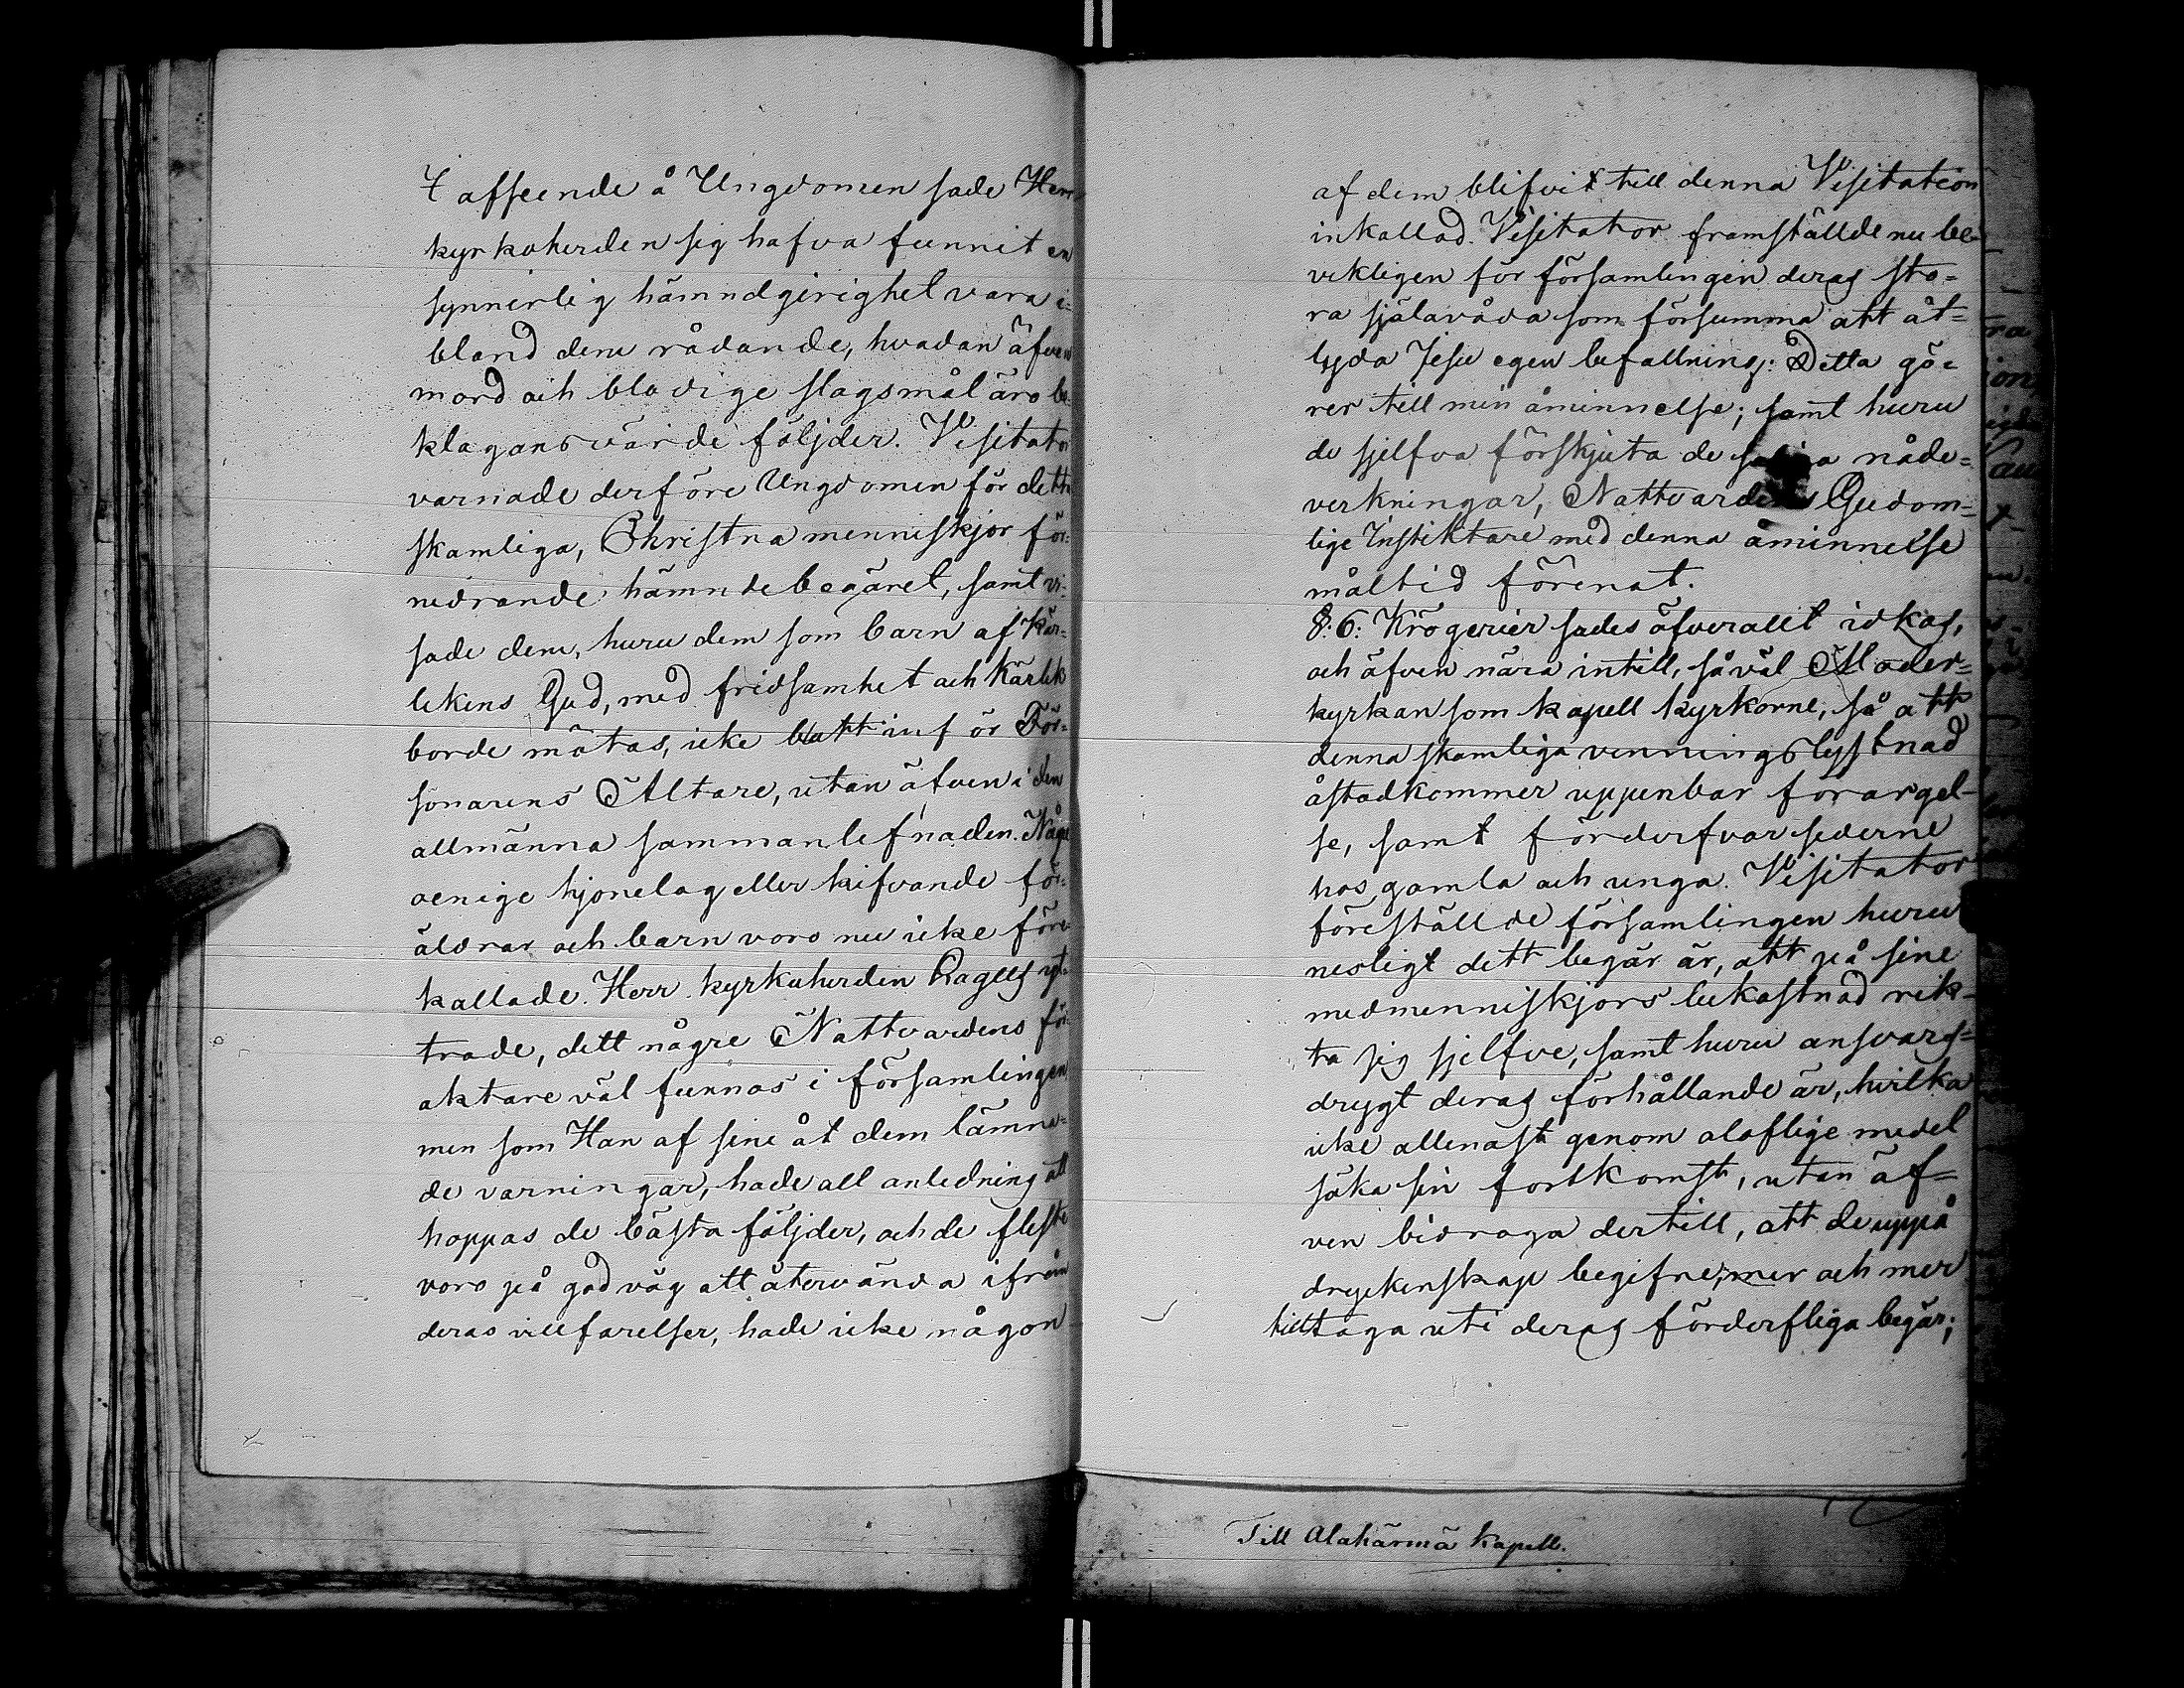 I afseende å Ungdomen sade Herr
kyrkoherden sig hafva funnit en
synnerlig hämndgirighet vara i=
bland dem rådande, hvadan äfven
mord och blodige slagsmål äro be=
klagansvärde följder. Visitator
varnade derföre Ungdomen för detta
skamliga, Christna menniskjor för=
nedrande hämndebegäret, samt vi=
sade dem, huru dem som barn af kär=
lekens Gud, med fridsamhet och kärlek
borde mötas, icke blott inför För=
sonarens Altare, utan äfven i den
allmänna sammanlefnaden. Någre
oenige hjonelag eller kifvande för=
äldrar och barn voro nu icke före
kallade. Herr kyrkoherden yt=
trade, dett någre Nattvardens för=
aktare väl funnos i församlingen
men som Han af sine åt dem lämna=
de varningar, hade all anledning att
hoppas de bästa följder, och de fleste
voro på god väg att återvända ifrån
deras villfarelser, hade icke någon
af dem blifvit till denna Visitation
inkallad. Visitator framställde nu be=
vekligen för församlingen deras sto=
ra själavåda som försumma att åt=
lyda Jesu egen befallning: Detta gö=
rer till min åminnelse; samt huru
de sjelfva förskjuta de saliga nåde=
verkningar, Nattvardens Gudom=
lige Instiktare med denna åminnelse
måltid förenat.
§: 6: Krögerier sades öfverallt idkas,
och äfven nära intill, såväl Moder=
kyrkan som kapell kyrkorne, så att
denna skamliga venningslystnad
åstadkommer uppenbar förargel-
se, samt förderfvar sederne
hos gamla och unga. Visitator
föreställde församlingen huru
nesligt dett begär är, att på sine
medmenniskjors bekostnad rik-
ta sig sjelfve, samt huru ansvars=
drygt deras förhållande är, hvilka
icke allenast genom oloflige medel
söka sin fortkomst, utan äf=
ven bidraga dertill, att de uppå
dryckenskap begifne, mer och mer
tilltaga uti deras förderfliga begär;
Till Alahärmä Kapell.